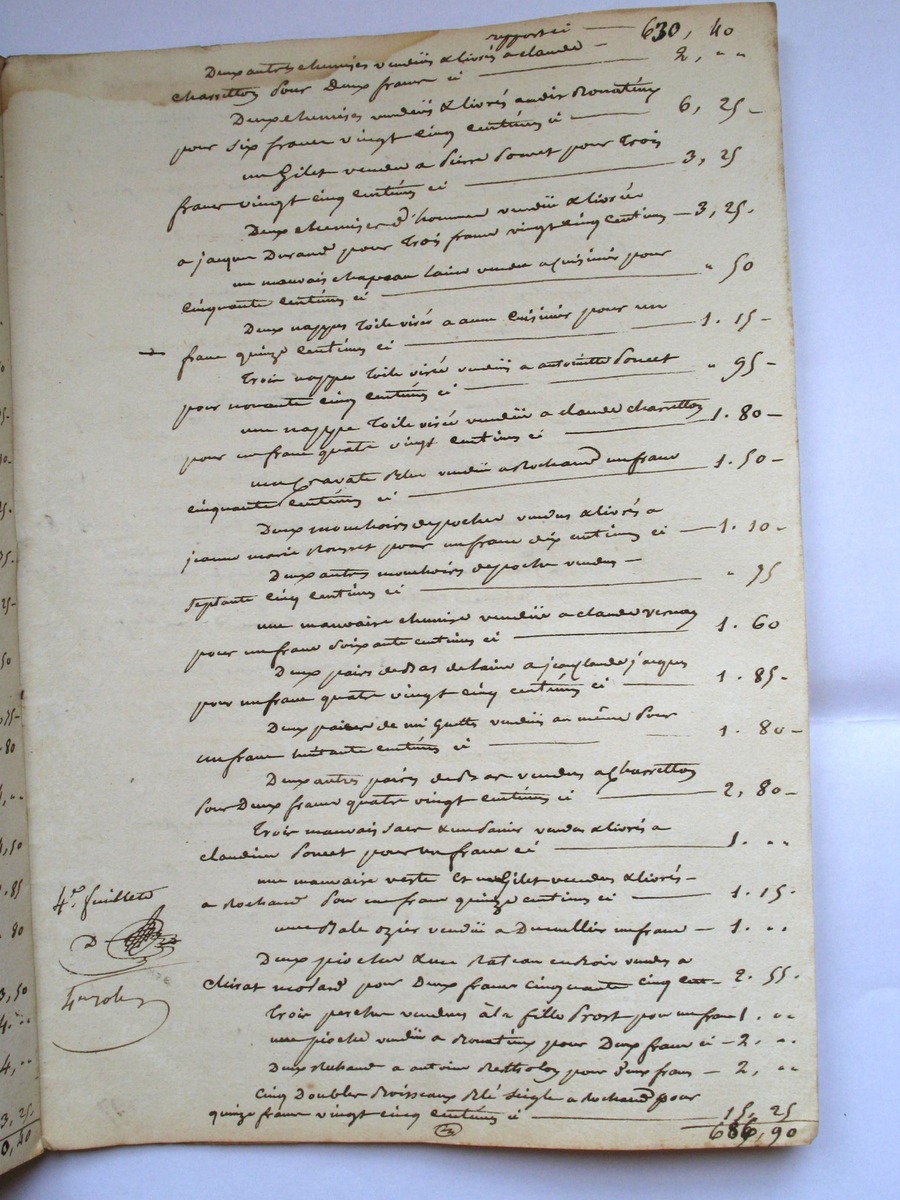 report ci — 630, 40
Deux autres chemises vendües & livrés a claude —
charretton pour Deux francs ci — 2, " "
Deux chemises vendüës & livrés audit Monateux
pour six francs vingt cinq centimes ci — 6, 25 -
un Gilet vendu a Pierre Poncet pour Trois
francs vingt cinq centimes ci — 3, 25
Deux chemises d'hommes vendüe & livrée
a jacque Durand pour Trois francs vingt cinq centimes — 3, 25.
un mauvais chapeau laine vendu a cuisinier pour
cinquante centimes ci — " 50
Deux nappes Toile visée a anne Cuisinier pour un
franc quinze centimes ci — 1. 15 -
Trois nappes Toile visée vendüs a antoinette Poncet
pour nonante cinq centimes ci — " 95 -
une nappe Toile visée vendüe a claude charretton
pour un franc quatre vingt centimes ci — 1. 80 -
une Cravate bleu vendüe a Rochand un franc
cinquante centimes ci — 1. 50 -
Deux mouchoirs de poches vendus & livrés a
jeanne marie Rousset pour un franc dix centimes ci — 1. 10 -
Deux autres mouchoirs de poche vendus —
septante cinq centimes ci — " 75
une mauvaise chemise vendüe a claude vernay
pour un franc soixante centimes ci — 1. 60
Deux pairs de Bas de laine a jean claude jacques
pour un franc quatre vingt cinq centimes ci — 1. 85 -
Deux paires de mi Guetts vendües au même pour
un franc huitante centimes ci — 1. 80 -
Deux autres paires de Bas vendus a Charretton
pour Deux francs quatre vingt centimes ci — 2, 80 -
Trois mauvais sacs & un Panier vendus & livrés a
claudine Poncet pour un franc ci — 1. " "
une mauvaise veste Et un Gilet vendus & livrés -
a Rochand pour un franc quinze centimes ci — 1. 15.
4e. feuillets
une Bale ozier vendüe a Dumellier un franc — 1. " "
D
Deux pioches & une Rateau en Bois vendus a
Clusat pour Deux francs cinquante cinq cent — 2. 55.
4me role
Trois perches vendues à la fille Prost pour un franc 1. " "
une pioche vendüe a Monateux pour Deux francs ci — 2, "
Deux a antoine Berthelon pour Deux francs — 2, " "
Cinq Doubles Boisseaux Blé seigle a Rochand pour
quinze francs vingt cinq centimes ci — 15, 25
686, 90